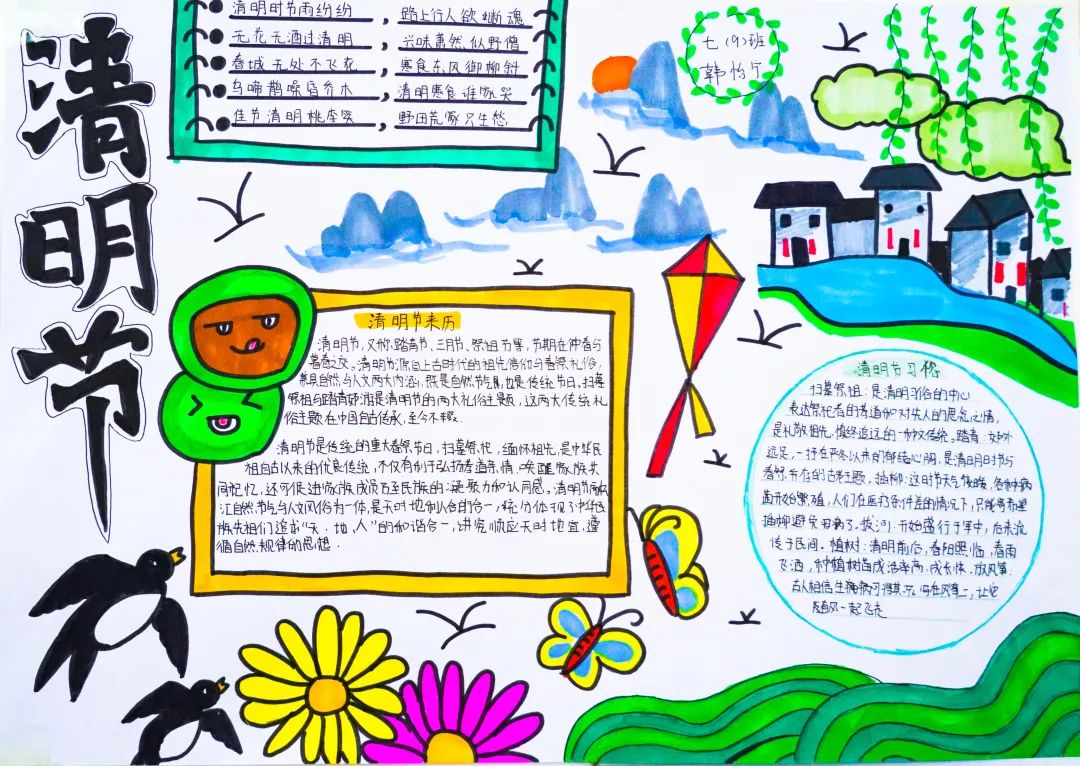 清明节
清明时节雨纷纷，路上行人欲断魂
无花无酒过清明，兴味萧然似野僧
春城无处不飞花，寒食东风御柳斜
乌啼鹊噪昏乔木，清明寒食谁家哭
佳节清明桃李笑，野田荒冢只生愁
七(9)班
韩怡
清明节来历
清明节，又称踏青节、三月节、祭祖节等，节期在仲春与
暮春之交。清明节源自上古时代的祖先信仰与春祭礼俗，
兼具自然与人文两大内涵，既是自然节气，也是传统节日，扫墓
祭祖与踏青郊游是清明节的两大礼俗主题，这两大传统礼
俗主题在中国自古传承，至今不辍。
清明节是传统的重大春祭节日，扫墓祭祀，缅怀祖先，是中华民
族自古以来的优良传统，不仅有利于弘扬孝道亲情、唤醒家族共
同记忆，还可促进家族成员乃至民族的凝聚力和认同感。清明节融
汇自然节气与人文风俗为一体，是天时地利人合的合一，充分体现了中华民
族先祖们追求“天、地、人”的和谐合一，讲究顺应天时地宜，遵
循自然规律的思想．
清明节习俗
扫墓祭祖：是清明习俗的中心
表达祭祀者的孝道和对先人的思念之情，
是礼敬祖先，慎终追远的一种文传统。踏青：
远足，一抒在严冬以来的郁结心胸，是清明时节与
春祭并存的古老主题，插柳：这时节天气很暖，各种病
菌开始繁殖，人们在医疗条件差的情况下，只能寄希望
插柳避免。拔河：开始盛行于军中，后来流
传于民间。植树：清明前后，春阳照临，春雨
飞洒，种植树苗成活率高，成长快，放风筝：
古人相信生病，让它
随风一起飞走